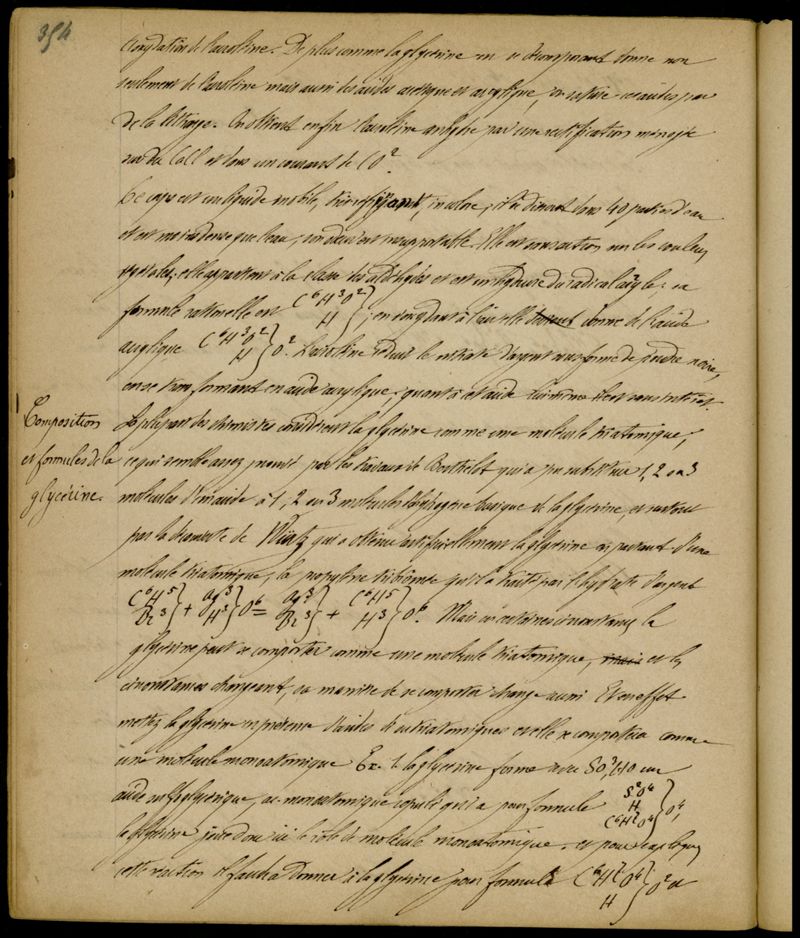 354
l'oxydation de l'acroléine. De plus comme la glycérine en se décomposant donne non
seulement de l'acroléine mais aussi des acides acétique et acrylique, on sature ces acides par
de la litharge. On obtient enfin l'acroléine anhydre par une rectification ménagée
sur du CaCl et dans un courant de CO².
Ce corps est un liquide mobile, très réfringent, incolore; il se dissout dans 40 parties d'eau
et est moins dense que l'eau; son odeur est insupportable. Elle est sans action sur les couleurs
végétales; elle appartient à la classe des aldéhydes et est un hydrure du radical acryle; sa
formule rationnelle est C⁶H³O² } H } ; en s'oxydant à l'air elle donne de l'acide
acrylique C⁶H³O² } H } O². L'acroléine réduit le nitrate d'argent sous forme de poudre noire,
en se transformant en acide acrylique; quant à cet acide lui-même il est sans intérêt.
Composition
et formules de la
glycérine.
La plupart des chimistes considèrent la glycérine comme une molécule triatomique,
ce qui semble assez prouvé par les travaux de Berthelot qui a pu substituer 1, 2 ou 3
molécules d'un acide à 1, 2 ou 3 molécules d'hydrogène basique de la glycérine, et surtout
par la découverte de Würtz qui a obtenu artificiellement la glycérine en partant d'une
molécule triatomique, le propylène tribromé qu'il a traité par l'hydrate d'argent
C⁶H⁵ } Br³ } + Ag³ } H³ } O⁶ = Ag³ } Br³ } + C⁶H⁵ } H³ } O⁶. Mais en certaines circonstances la
glycérine peut se comporter comme une molécule triatomique, mais et les
circonstances changeant, sa manière de se comporter change aussi. Et en effet
mettez la glycérine en présence d'acides biatomiques et elle se comportera comme
une molécule monoatomique. Ex. la glycérine forme avec SO³,HO un
acide sulfoglycérique, ac. monoatomique copulé qui a pour formule S²O⁴ } H } C⁶H⁷O⁴ } O⁴,
la glycérine joue donc ici le rôle de molécule monoatomique. et pour expliquer
cette réaction il faudra donner à la glycérine pour formule C⁶H⁷O⁴ } H } O² et